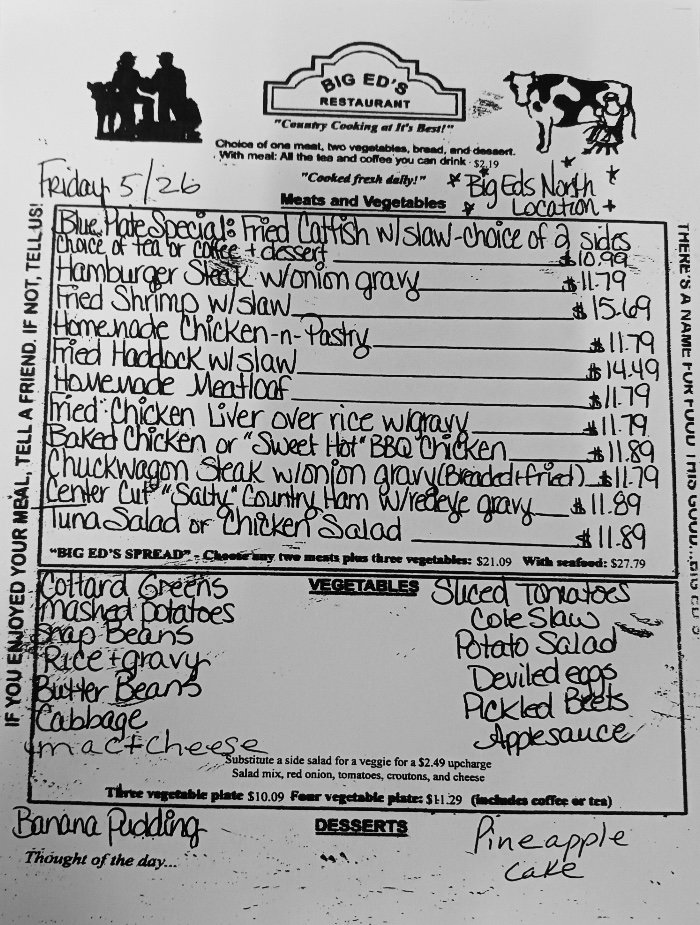 BIG ED'S
RESTAURANT
"Country Cooking at It's Best!"
Choice of one meat, two vegetables, bread, and dessert.
With meal: All the tea and coffee you can drink - $2.19
"Cooked fresh daily!"
Friday 5/26
Big Eds North
Location
Meats and Vegetables
Blue Plate Special: Fried Catfish w/slaw-choice of 2 sides
Choice of tea or coffee + dessert $10.99
Hamburger Steak w/onion gravy $11.79
Fried Shrimp w/slaw $15.69
Homemade Chicken-n-Pastry $11.79
Fried Haddock w/slaw $14.49
Homemade Meatloaf $11.79
Fried Chicken Liver over rice w/gravy $11.79
Baked Chicken or "Sweet Hot" BBQ Chicken $11.89
Chuckwagon Steak w/onion gravy (Breaded+fried) $11.79
Center Cut "Salty" Country Ham w/redeye gravy $11.89
Tuna Salad or Chicken Salad $11.89
"BIG ED'S SPREAD" - Choose any two meats plus three vegetables: $21.09 With seafood: $27.79
VEGETABLES
Collard Greens
Mashed potatoes
Snap Beans
Rice + gravy
Butter Beans
Cabbage
mac + cheese
Sliced Tomatoes
Cole Slaw
Potato Salad
Deviled eggs
Pickled Beets
Applesauce
Substitute a side salad for a veggie for a $2.49 upcharge
Salad mix, red onion, tomatoes, croutons, and cheese
Three vegetable plate $10.09 Four vegetable plate: $11.29 (includes coffee or tea)
DESSERTS
Banana Pudding
Pineapple
cake
Thought of the day...
IF YOU ENJOYED YOUR MEAL, TELL A FRIEND. IF NOT, TELL US!
THERE'S A NAME FOR FOOD THIS GOOD, BIG ED'S